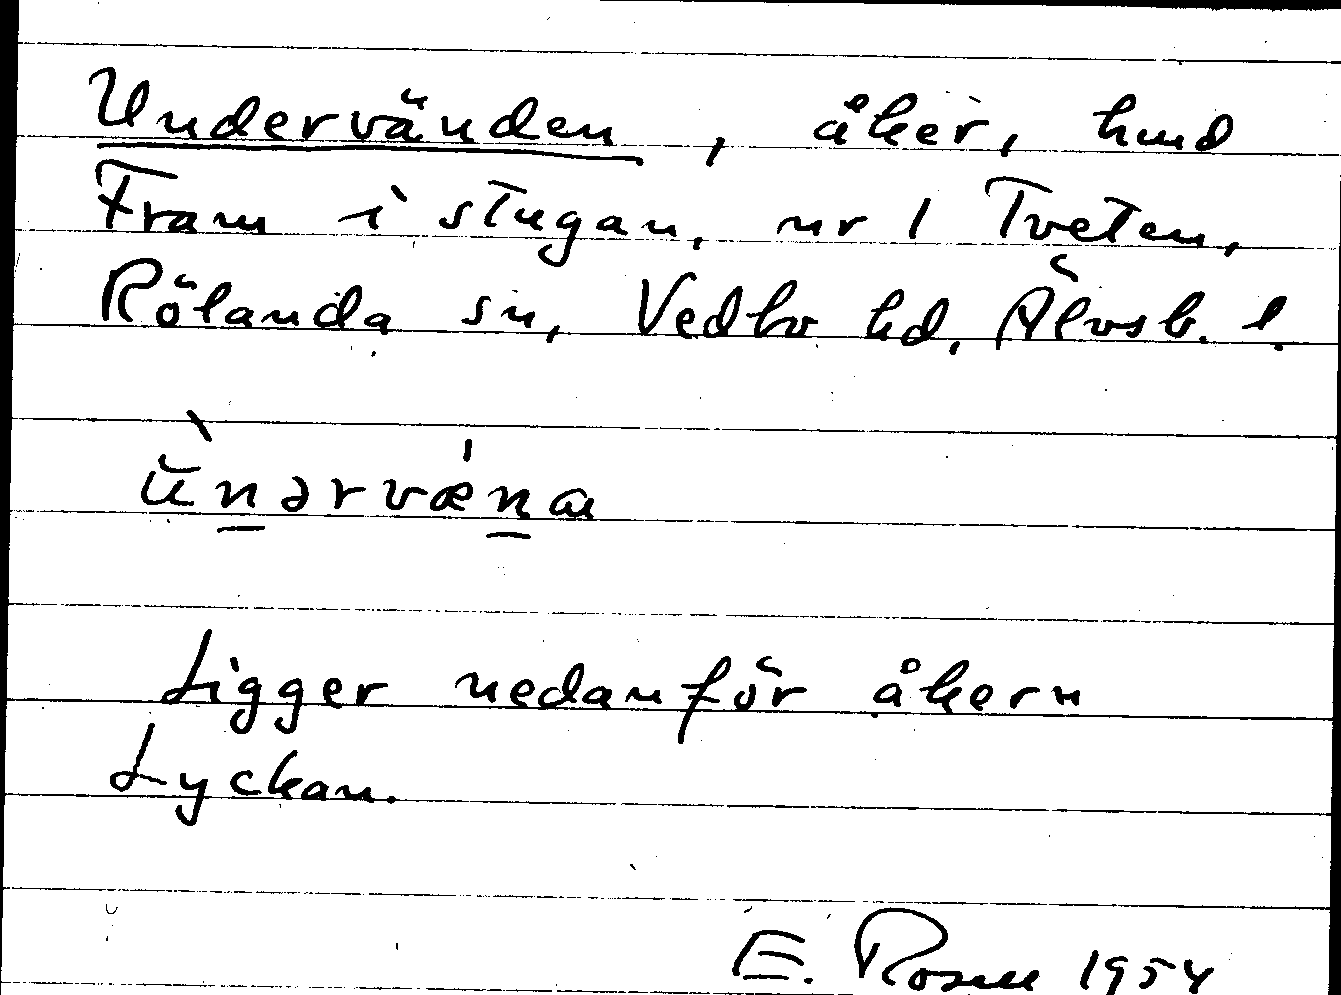 Undervänden, åker, hmd
Fram i stugan, nr 1 Tveten,
Rölanda sn, Vedbo hd, Älvsb. l.
ùnərvæ'na
Ligger nedanför åkern
Lyckan.
E. Rosell 1954